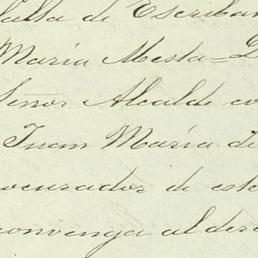 falta de Escriban
María Mesta=D
Señor Alcalde co
Juan María de
ocurador de este
convenga al dere